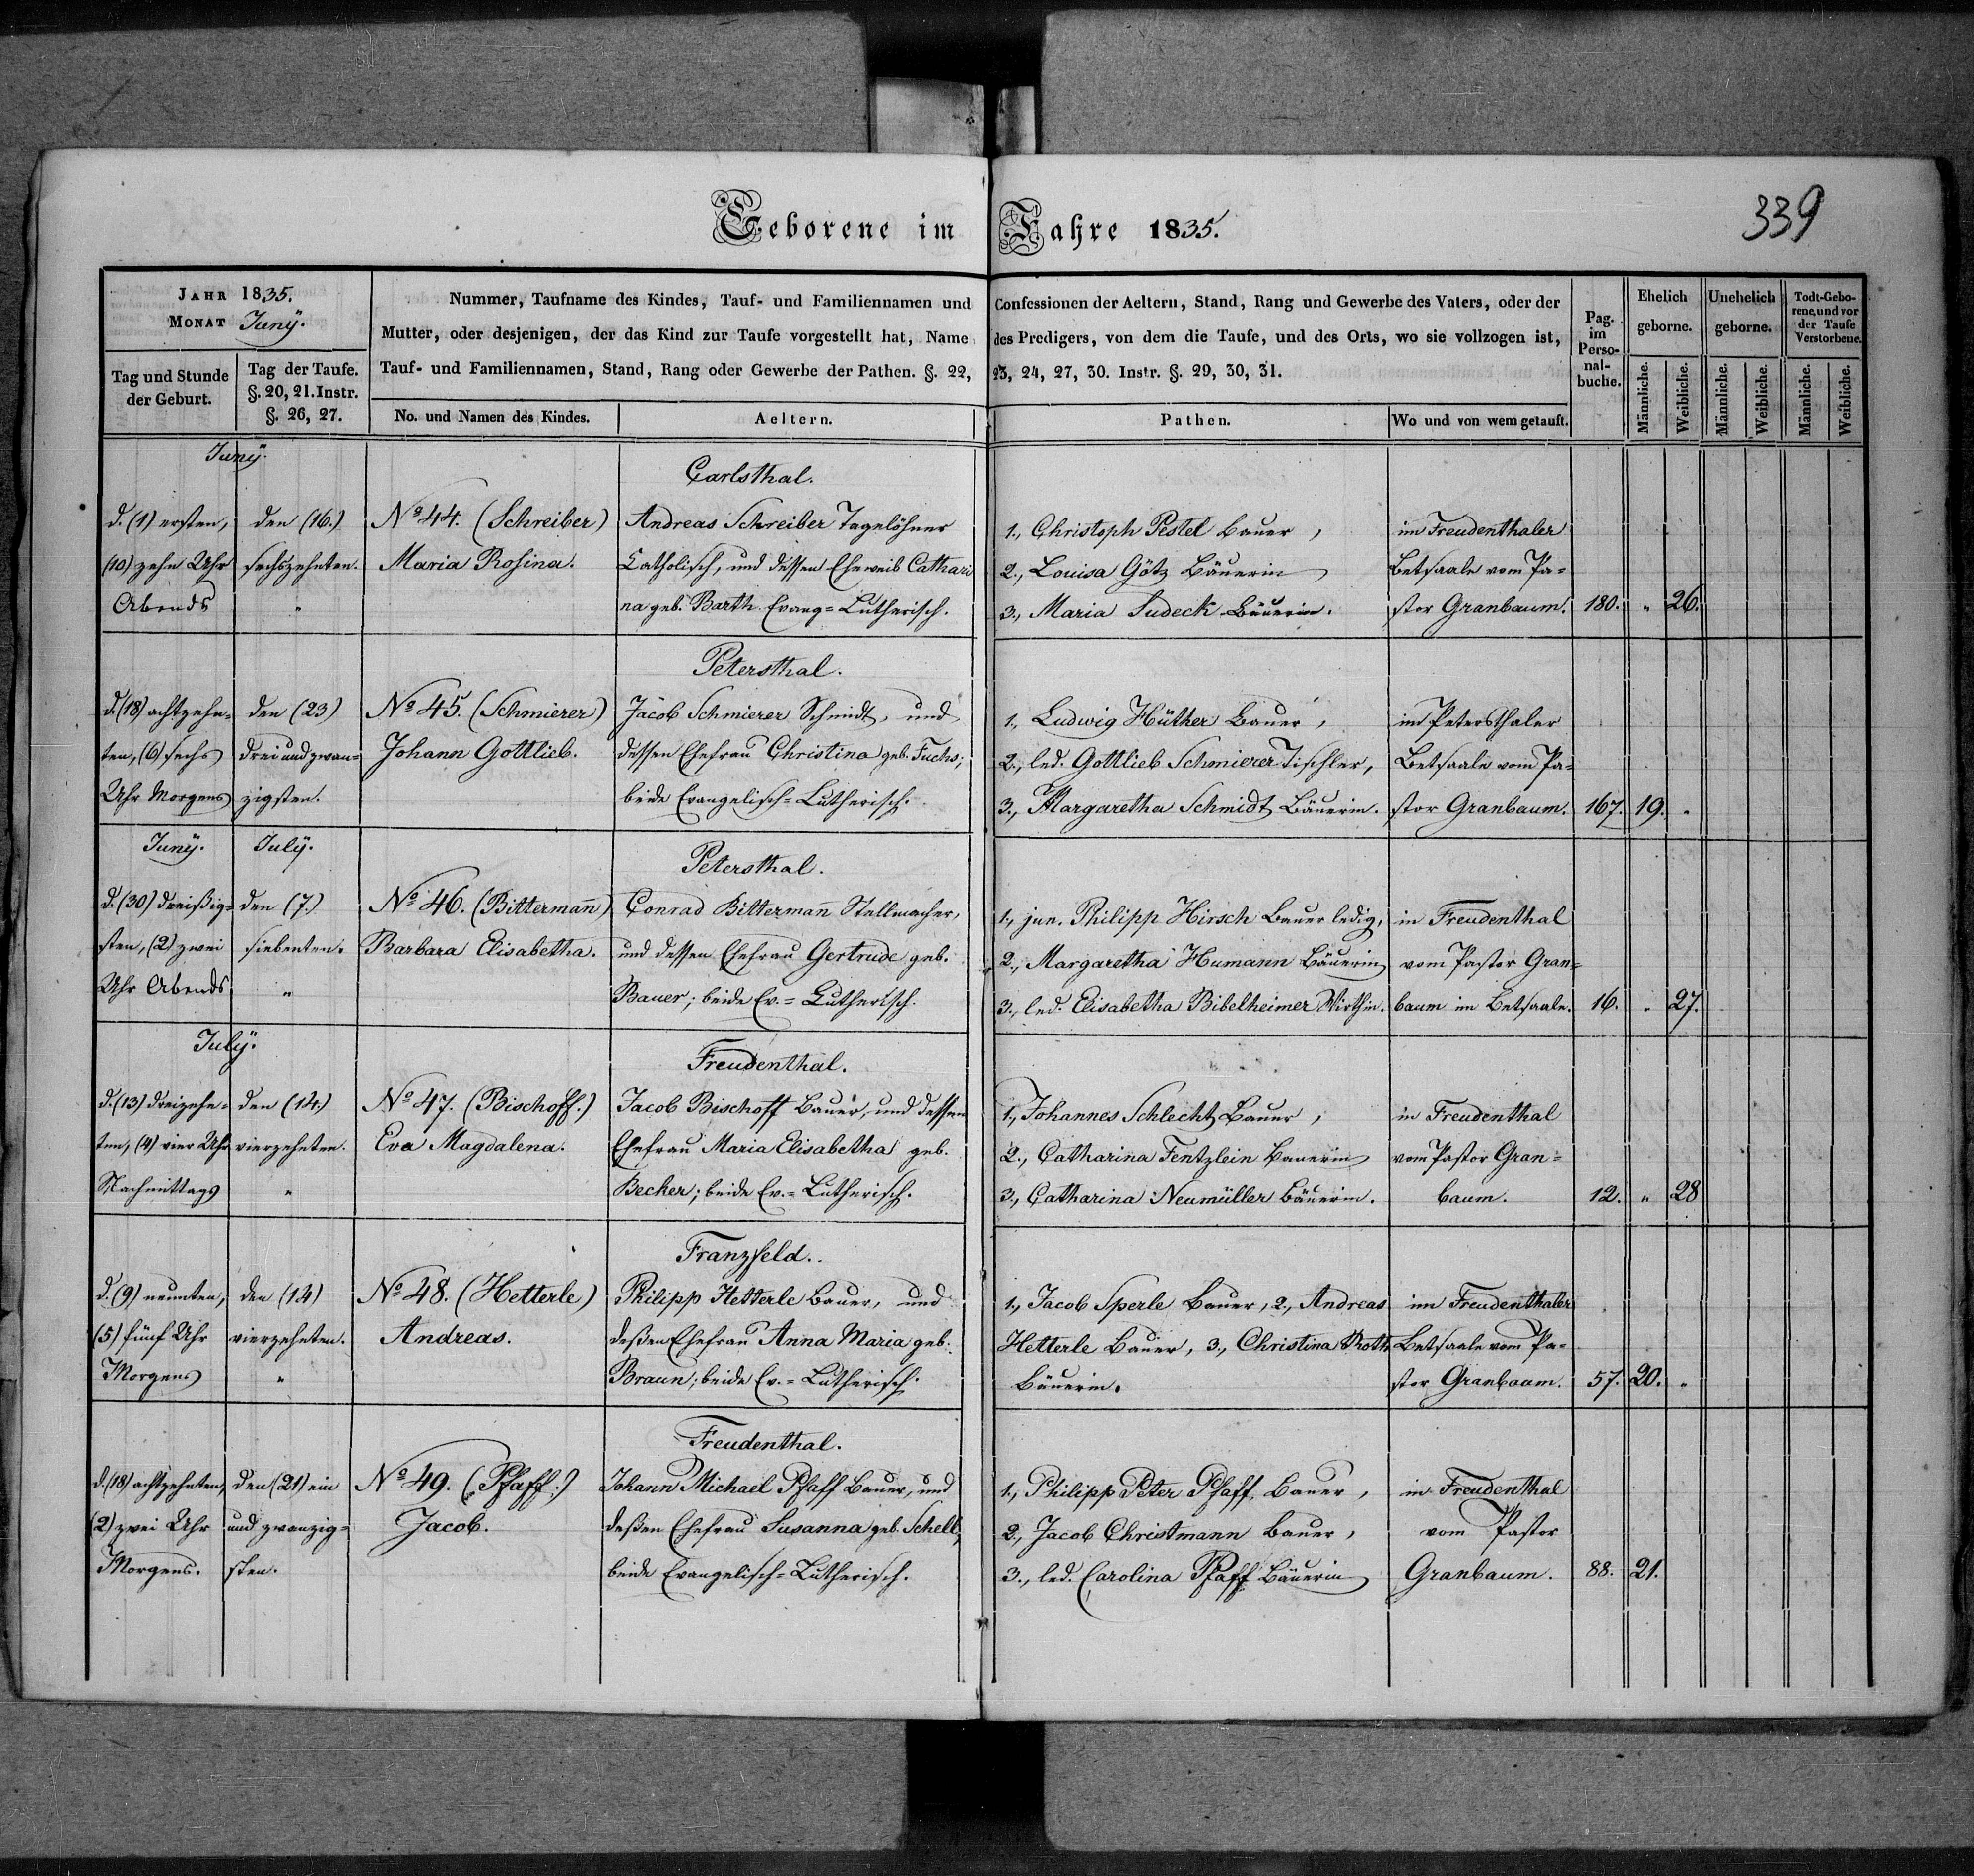 Geborene im Jahre 1835.
339
JAHR 1835.
MONAT Juny.
Tag und Stunde der Geburt.
Tag der Taufe. §. 20, 21. Instr. §. 26, 27.
Nummer, Taufname des Kindes, Tauf- und Familiennamen und Confessionen der Aeltern, Stand, Rang und Gewerbe des Vaters, oder der
Mutter, oder desjenigen, der das Kind zur Taufe vorgestellt hat, Name des Predigers, von dem die Taufe, und des Orts, wo sie vollzogen ist,
Tauf- und Familiennamen, Stand, Rang oder Gewerbe der Pathen. §. 22, 23, 24, 27, 30. Instr. §. 29, 30, 31.
No. und Namen des Kindes.
Aeltern.
Pathen.
Wo und von wem getauft.
Pag. im Perso-nal-buche.
Ehelich geborne.
Unehelich geborne.
Todt-Gebo-rene, und vor der Taufe Verstorbene.
Männliche. Weibliche. Männliche. Weibliche. Männliche. Weibliche.
Juny.
Carlsthal.
d. (1) ersten,
(10) zehn Uhr
Abends
den (16.)
sechszehnten.
"
No 44. (Schreiber)
Maria Rosina.
Andreas Schreiber Tagelöhner
Catholisch, und dessen Eheweib Cathari
na geb. Barth. Evang=Lutherisch.
1., Christoph Pestel Bauer,
2., Louisa Götz Bäuerin
3., Maria Sudeck Bäuerin.
im Freudenthaler
Betsaale vom Pa=
stor Granbaum.
180. " 26.
Petersthal.
d. (18) achtzehn=
ten, (6) sechs
Uhr Morgens
den (23)
drei und zwan=
zigsten.
No 45. (Schmierer)
Johann Gottlieb.
Jacob Schmierer Schmidt, und
dessen Ehefrau Christina geb. Fuchs;
beide Evangelisch=Lutherisch.
1., Ludwig Hüther Bauer,
2., led. Gottlieb Schmierer Tischler,
3., Margaretha Schmidt Bäuerin.
im Petersthaler
Betsaale vom Pa=
stor Granbaum.
167. 19. "
Juny. July.
Petersthal.
d. (30) dreißig=
sten, (2) zwei
Uhr Abends
den (7.)
siebenten.
"
No 46. (Bittermañ)
Barbara Elisabetha.
Conrad Bittermañ Stellmacher,
und dessen Ehefrau Gertrude geb.
Bauer; beide Ev.=Lutherisch.
1., jun. Philipp Hirsch Bauer ledig,
2., Margaretha Humann Bäuerin
3., led. Elisabetha Bibelheimer Wirthin.
in Freudenthal
vom Pastor Gran=
baum im Betsaale.
16. " 27.
July.
Freudenthal.
d. (13) dreizehn=
ten, (4) vier Uhr
Nachmittags
den (14.)
vierzehnten.
"
No 47. (Bischoff.)
Eva Magdalena.
Jacob Bischoff Bauer, und dessen
Ehefrau Maria Elisabetha geb.
Becker; beide Ev.=Lutherisch.
1., Johannes Schlecht Bauer,
2., Catharina Fentzlein Bauerin
3., Catharina Neumüller Bäuerin.
in Freudenthal
vom Pastor Gran=
baum.
12. " 28
Franzfeld.
d. (9) neunten,
(5) fünf Uhr
Morgens
den (14)
vierzehnten.
"
No 48. (Hetterle)
Andreas.
Philipp Hetterle Bauer, und
deßen Ehefrau Anna Maria geb.
Braun; beide Ev.=Lutherisch.
1., Jacob Sperle Bauer, 2., Andreas
Hetterle Bauer, 3., Christina Roth
Bäuerin.
im Freudenthaler
Betsaale vom Pa=
stor Granbaum.
57. 20. "
Freudenthal.
d. (18) achtzehnten,
(2) zwei Uhr
Morgens.
den (21) ein
und zwanzig=
sten.
No 49. (Pfaff.)
Jacob.
Johann Michael Pfaff Bauer, und
deßen Ehefrau Susanna geb. Schell,
beide Evangelisch=Lutherisch.
1., Philipp Peter Pfaff Bauer,
2., Jacob Christmann Bauer,
3., led. Carolina Pfaff Bäuerin
in Freudenthal
vom Pastor
Granbaum.
88. 21.